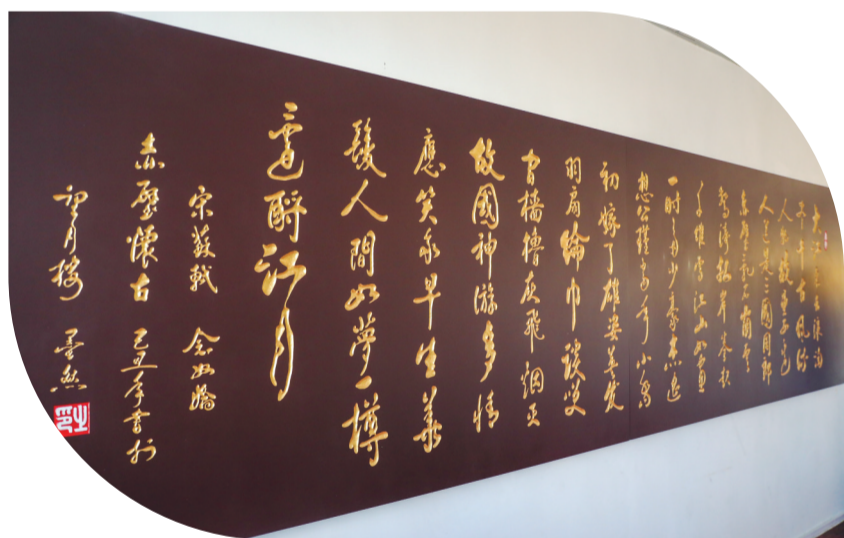 大江東去浪淘
千古風流
人物故壘西邊
人道是三國周郎
赤壁亂石崩雲
驚濤拍岸卷起
千堆雪江山如畫
一時多少豪杰遥
想公瑾當年小喬
初嫁了雄姿英發
羽扇綸巾談笑
間檣櫓灰飛烟灭
故國神游多情
應笑我早生華
髮人間如夢一樽
還酹江月
宋蘇軾 念奴嬌
赤壁懷古 己丑年書於
望月楼